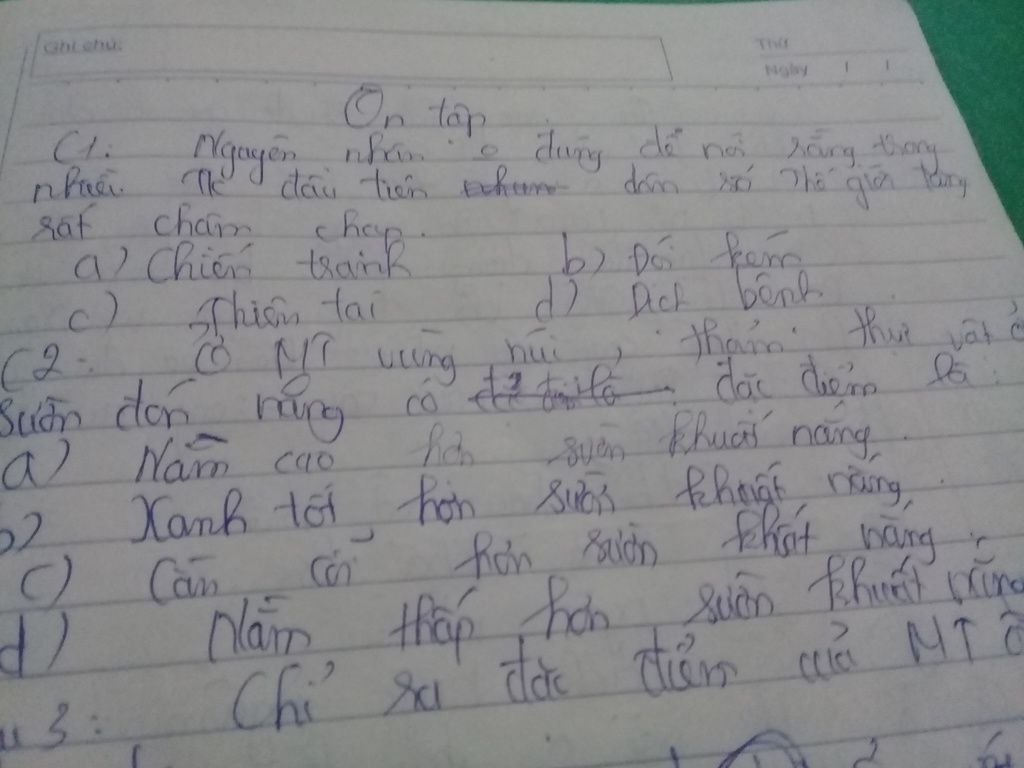 Ghi chú:
Thứ
Ngày / /
Ôn tập
C1: Nguyên nhân o dung để nói rằng trong
nhiều TK đầu tiên dân số thế giới tăng
rất chậm chạp.
a) Chiến tranh b) Đói kém
c) Thiên tai d) Dịch bệnh
C2: Ở MT vùng núi, thảm thực vật ở
sườn đón nắng có đặc điểm là:
a) Nằm cao hơn sườn khuất nắng.
b) Xanh tốt hơn sườn khuất nắng.
c) Cằn cỗi hơn sườn khất nắng.
d) Nằm thấp hơn sườn khuất nắng
3: Chỉ ra đặc điểm của MT ở